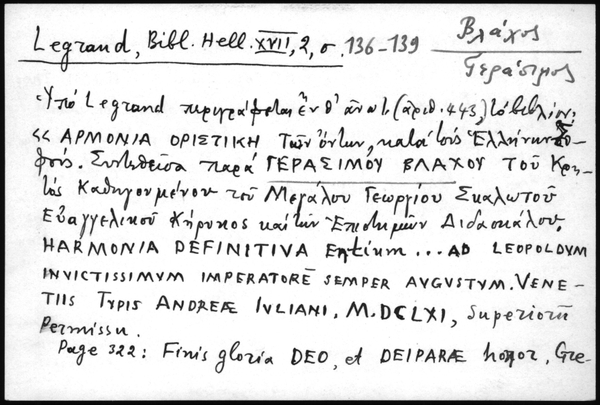 Legrand, Bibl. Hell. XVII, 2, σ. 136-139
Βλάχος
Γεράσιμος
Ὑπό Legrand περιγράφεται ἔνθ' ἀνωτ. (ἀριθ. 443), τό βιβλίον:
<< ΑΡΜΟΝΙΑ ΟΡΙΣΤΙΚΗ τῶν ὄντων, κατά τούς Ἑλλήνων σο-
φούς. Συντεθεῖσα παρά ΓΕΡΑΣΙΜΟΥ ΒΛΑΧΟΥ τοῦ Κρη-
τός Καθηγουμένου τοῦ Μεγάλου Γεωργίου Σκαλωτοῦ
Εὐαγγελικοῦ Κήρυκος καί τῶν Ἐπιστημῶν Διδασκάλου.
HARMONIA DEFINITIVA Entium ... AD LEOPOLDVM
INVICTISSIMVM IMPERATORẼ SEMPER AVGVSTVM. VENE-
TIIS TYPIS ANDREÆ IVLIANI, M.DCLXI, Superiorũ
Permissu.
Page 322: Finis gloria DEO, et DEIPARÆ honor, Gre-